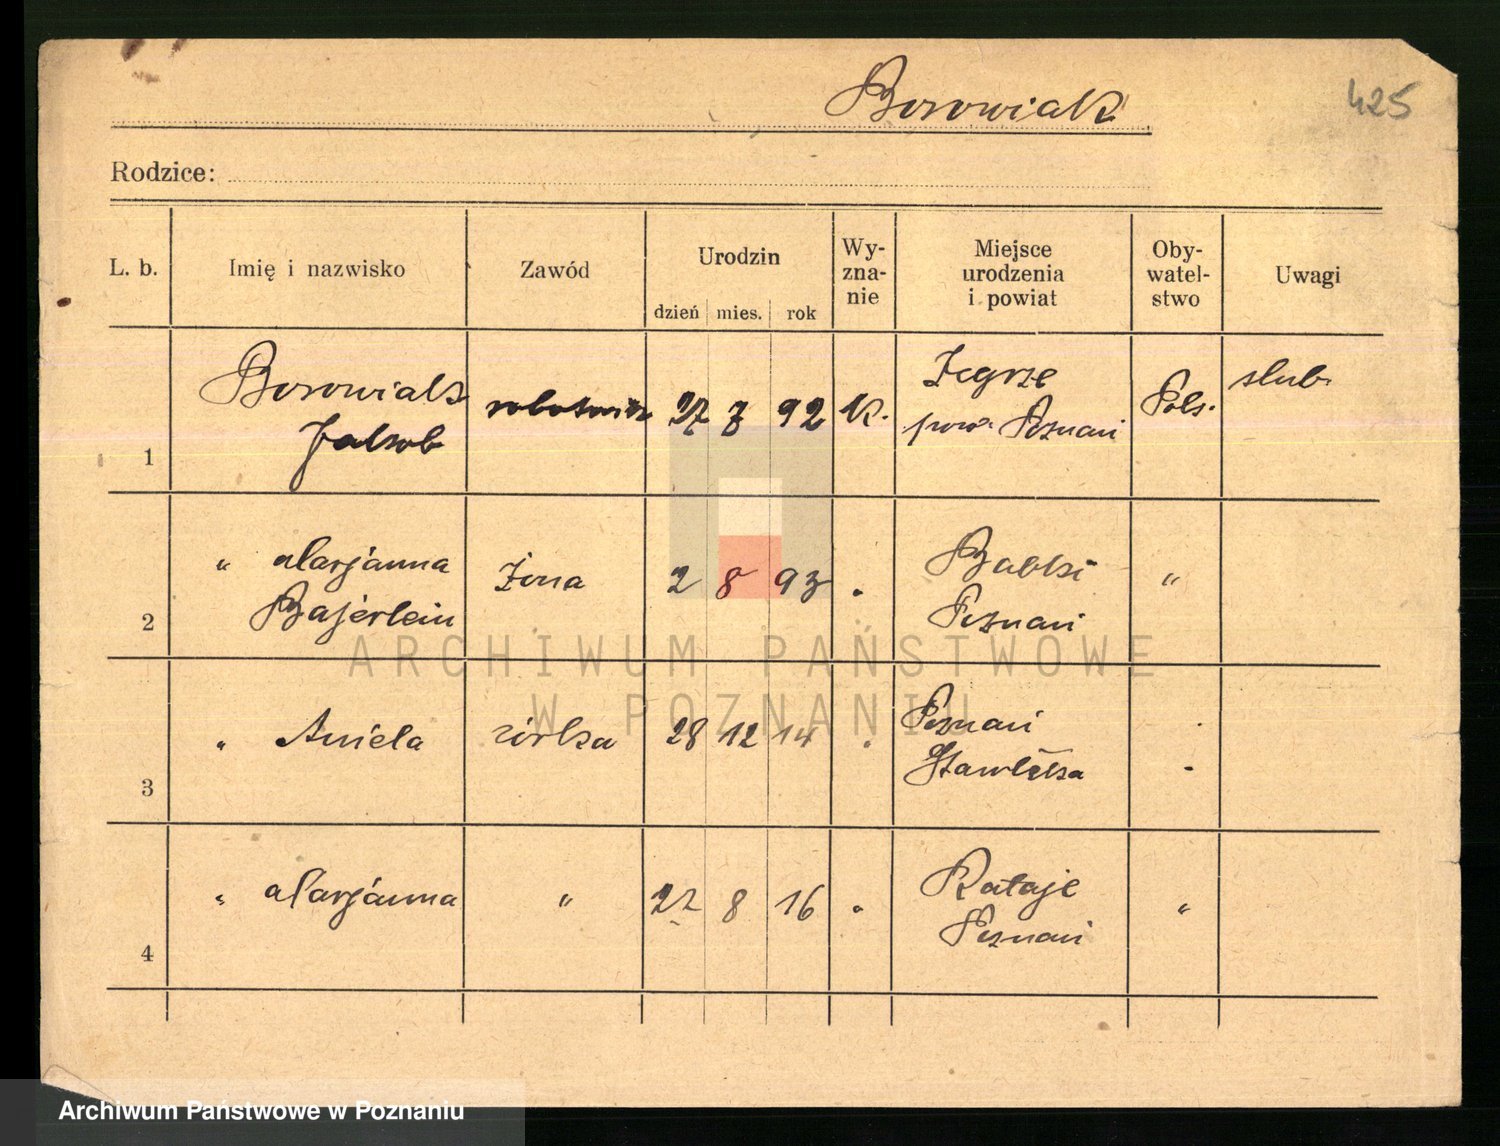 Borowiak
425
Rodzice:
L. b. Imię i nazwisko Zawód Urodzin Wy-zna-nie Miejsce urodzenia i powiat Oby-watel-stwo Uwagi
dzień mies. rok
1 Borowiak Jakob robotnik 27 7 92 K. Zegrze pow. Poznań Pols. slub.
2 " Marjanna Bajerlein żona 2 8 93 " Babki Poznań "
3 " Aniela córka 28 12 14 " Poznań Hawelska
4 " Marjanna " 22 8 16 " Rataje Poznań "
ARCHIWUM PAŃSTWOWE
W POZNANIU
Archiwum Państwowe w Poznaniu